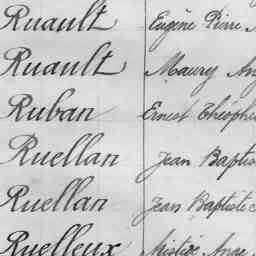 Ruault Eugène Pierre
Ruault Maurey
Ruban Ernest
Ruellan Jean
Ruellan Jean Baptiste
Ruelleux Ange